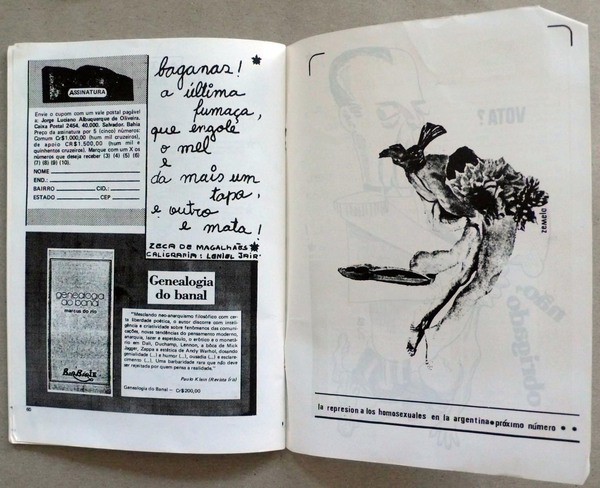 ASSINATURA
Envie o cupom com um vale postal pagável
a: Jorge Luciano Albuquerque de Oliveira,
Caixa Postal 2454, 40.000, Salvador, Bahia
Preço da assinatura por 5 (cinco) números:
Comum Cr$1.000,00 (hum mil cruzeiros),
de apoio CR$1.500,00 (hum mil e
quinhentos cruzeiros). Marque com um X os
números que deseja receber (3) (4) (5) (6)
(7) (8) (9) (10).
NOME
END.:
BAIRRO CID.:
ESTADO CEP
baganas!
a última
fumaça,
que engole
o mel
e
dá mais um
tapa,
e outro
e mata!
ZECA DE MAGALHÃES
CALIGRAFIA: LENIEL JAIR
genealogia
do banal
marcus do rio
Genealogia
do banal
"Mesclando neo-anarquismo filosófico com certa
liberdade poética, o autor discorre com inteligência
e criatividade sobre fenômenos das comunicações,
novas tendências do pensamento moderno,
anarquia, lazer e espetáculo, o erótico e o monetário
em Dali, Duchamp, Lennon, a bios de Mick
Jagger, Zappa e estética de Andy Warhol, dosando
genialidade (...) e humor (...), ousadia (...) e esclarecimento
(...). Uma barbaridade rara que não deve
ser rejeitada por quem pensa a realidade."
Paulo Klein (Revista Íris)
Genealogia do Banal — Cr$200,00
zemelo
VOTA?
não,
obrigado
la represion a los homosexuales en la argentina•próximo número • •